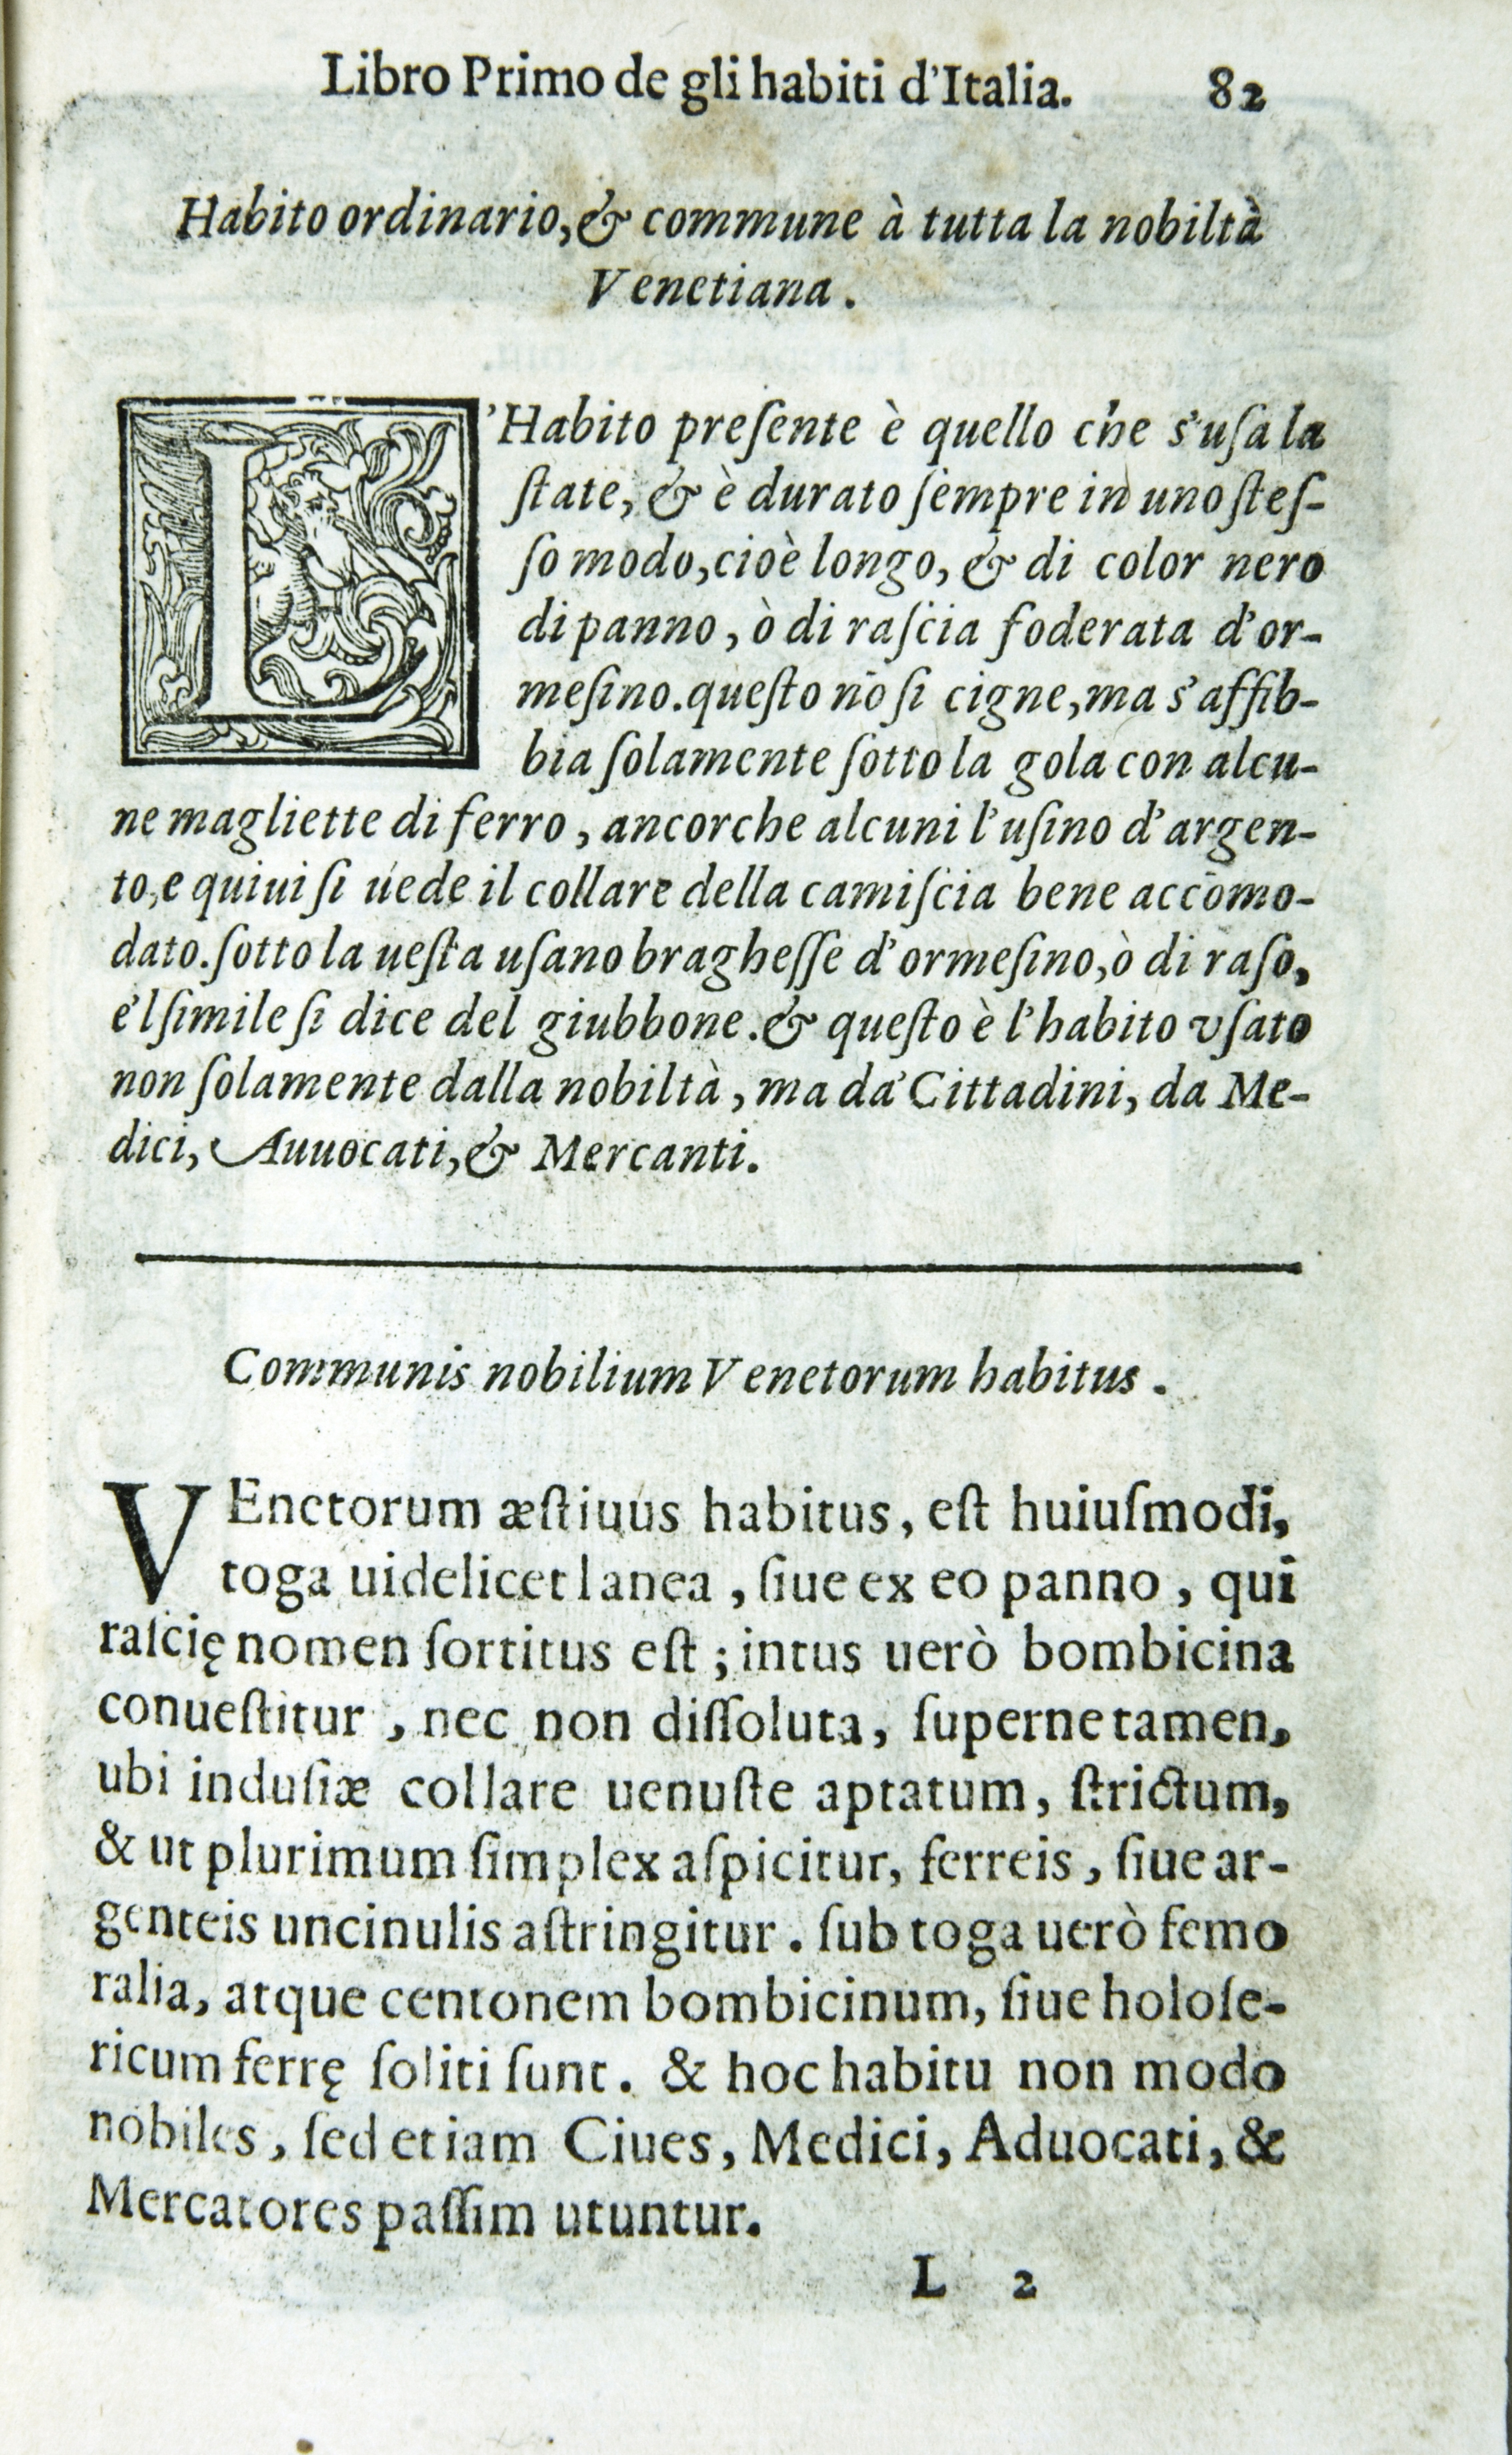 Libro Primo de gli habiti d'Italia. 82
Habito ordinario, & commune à tutta la nobiltà
Venetiana.
L'Habito preſente è quello che s'uſa la
ſtate, & è durato ſempre in uno ſteſ-
ſo modo, cioè longo, & di color nero
di panno, ò di raſcia foderata d'or-
meſino. queſto nō ſi cigne, ma s'affib-
bia ſolamente ſotto la gola con alcu-
ne magliette di ferro, ancorche alcuni l'uſino d'argen-
to, e quiui ſi uede il collare della camiſcia bene accōmo-
dato. ſotto la ueſta uſano bragheſſe d'ormeſino, ò di raſo,
e'l ſimile ſi dice del giubbone. & queſto è l'habito vſato
non ſolamente dalla nobiltà, ma da' Cittadini, da Me-
dici, Auuocati, & Mercanti.
Communis nobilium Venetorum habitus.
VEnetorum æſtiuus habitus, eſt huiuſmodi,
toga uidelicet lanea, ſiue ex eo panno, qui
raſcię nomen ſortitus eſt; intus uerò bombicina
conueſtitur, nec non diſſoluta, ſuperne tamen,
ubi induſiæ collare uenuſte aptatum, ſtrictum,
& ut plurimum ſimplex aſpicitur, ferreis, ſiue ar-
genteis uncinulis aſtringitur. ſub toga uerò femo
ralia, atque centonem bombicinum, ſiue holoſe-
ricum ferrę ſoliti ſunt. & hoc habitu non modo
nobiles, ſed etiam Ciues, Medici, Aduocati, &
Mercatores paſſim utuntur.
L 2